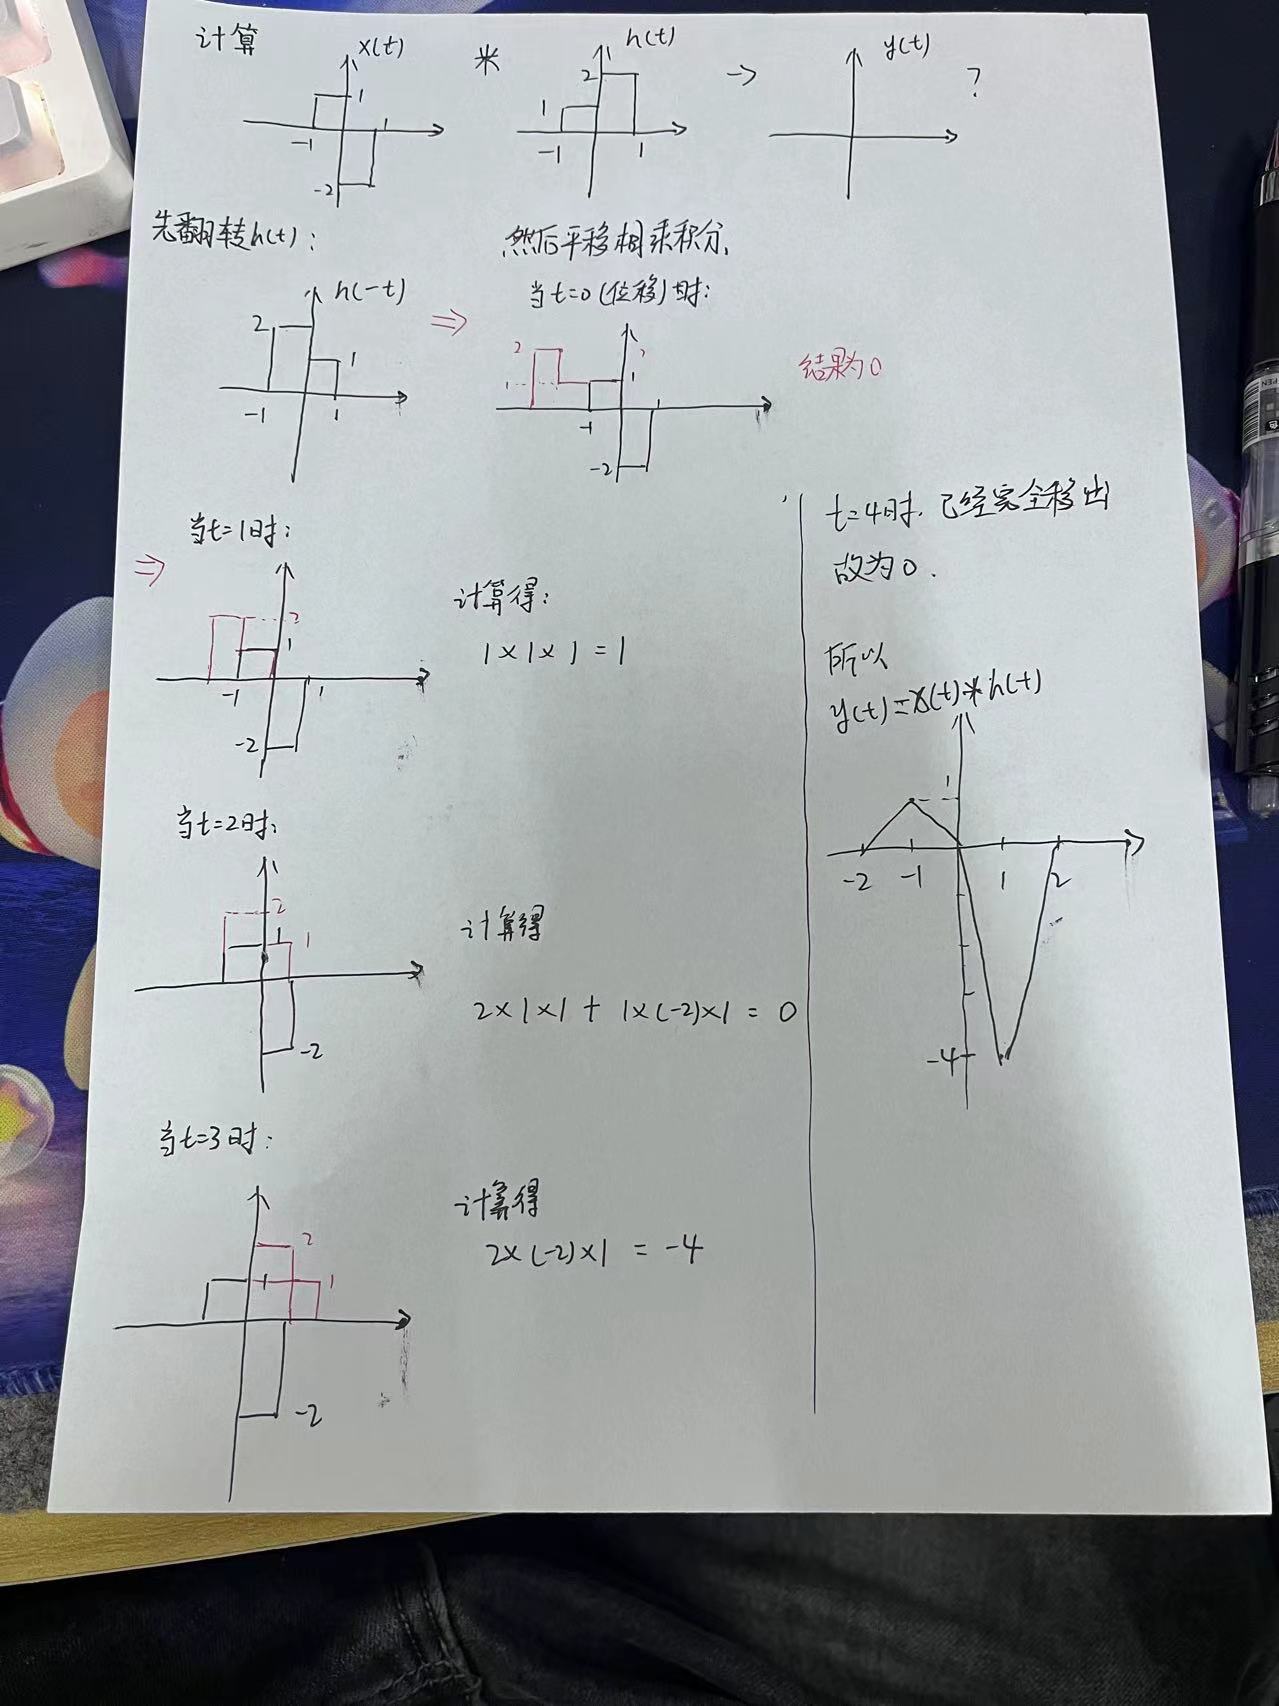 计算
x(t)
*
h(t)
→
y(t)
?
1
-1
1
-2
2
1
-1
1
先翻转h(t):
然后平移相乘积分,
当t=0(位移)时:
h(-t)
2
1
-1
1
⇒
2
2
1
1
-1
1
-2
结果为0
⇒
当t=1时:
2
1
-1
1
-2
计算得:
1×1×1=1
当t=2时:
2
1
1
-2
计算得
2×1×1+1×(-2)×1=0
当t=3时:
2
1
1
-2
计算得
2×(-2)×1=-4
t=4时.已经完全移出
故为0.
所以
y(t)=x(t)*h(t)
1
-2
-1
1
2
-4